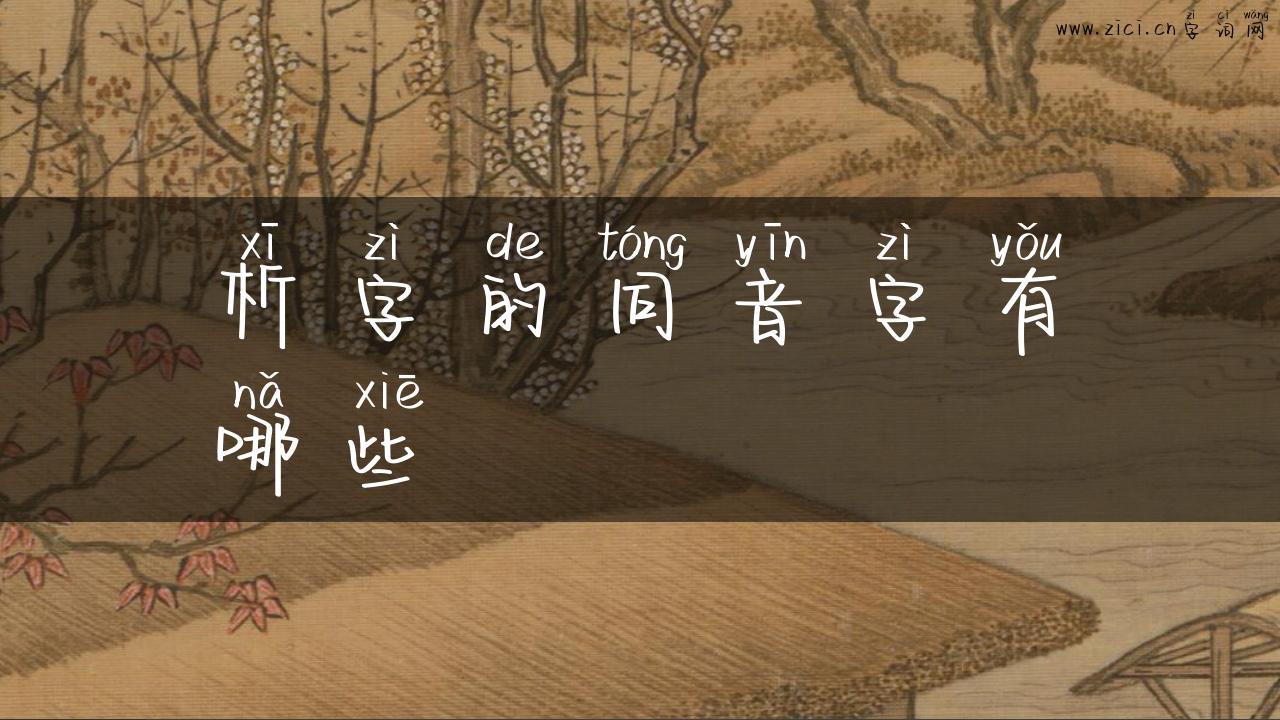 zì cí wǎng
www.zici.cn 字词网
xī zì de tóng yīn zì yǒu
析字的同音字有
nǎ xiē
哪些